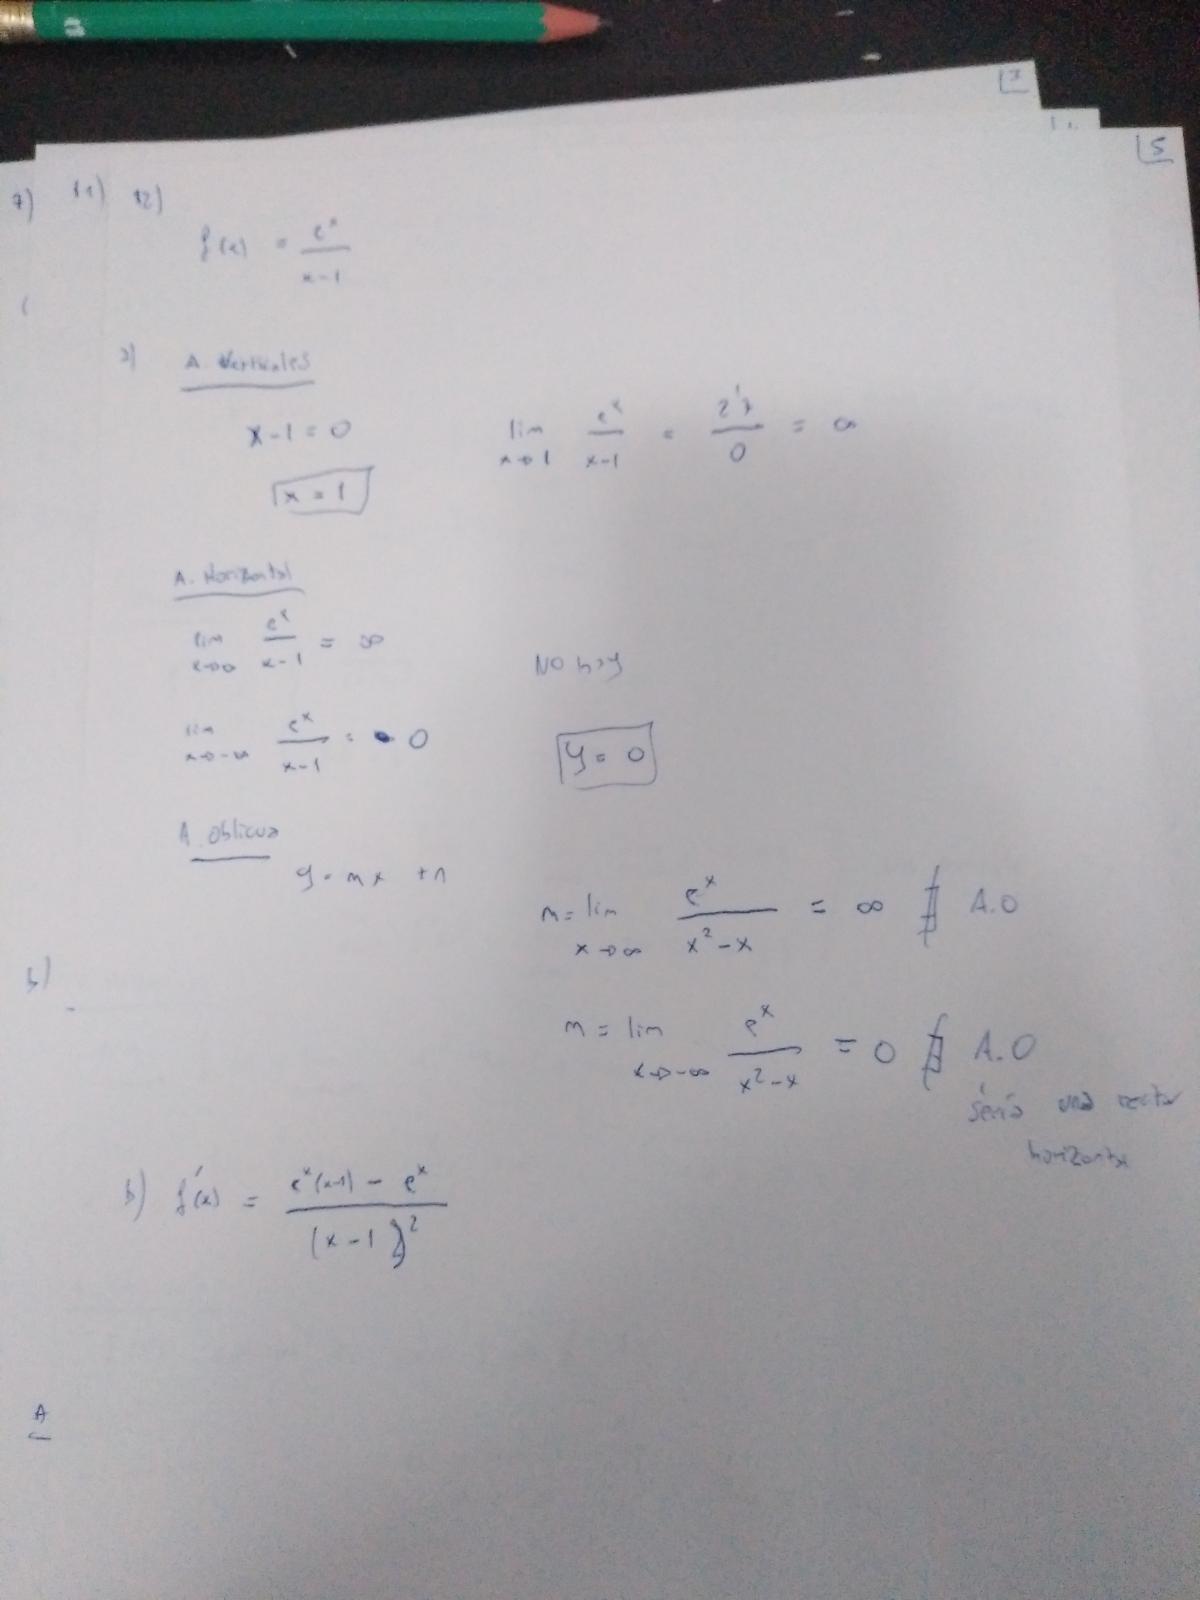 7
5
7) 11) 12)
f(x) = e^x / (x-1)
a) A. Verticales
x-1=0
lim x→1 e^x / (x-1) = 2'7 / 0 = ∞
x = 1
A. Horizontal
lim x→∞ e^x / (x-1) = ∞ No hay
lim x→-∞ e^x / (x-1) = 0 y = 0
A. oblicua
y = mx + n
m = lim x→∞ e^x / (x²-x) = ∞ ∄ A.O
b)
m = lim x→-∞ e^x / (x²-x) = 0 ∄ A.O
sería una recta
horizontal
b) f'(x) = (e^x(x-1) - e^x) / (x-1)²
A